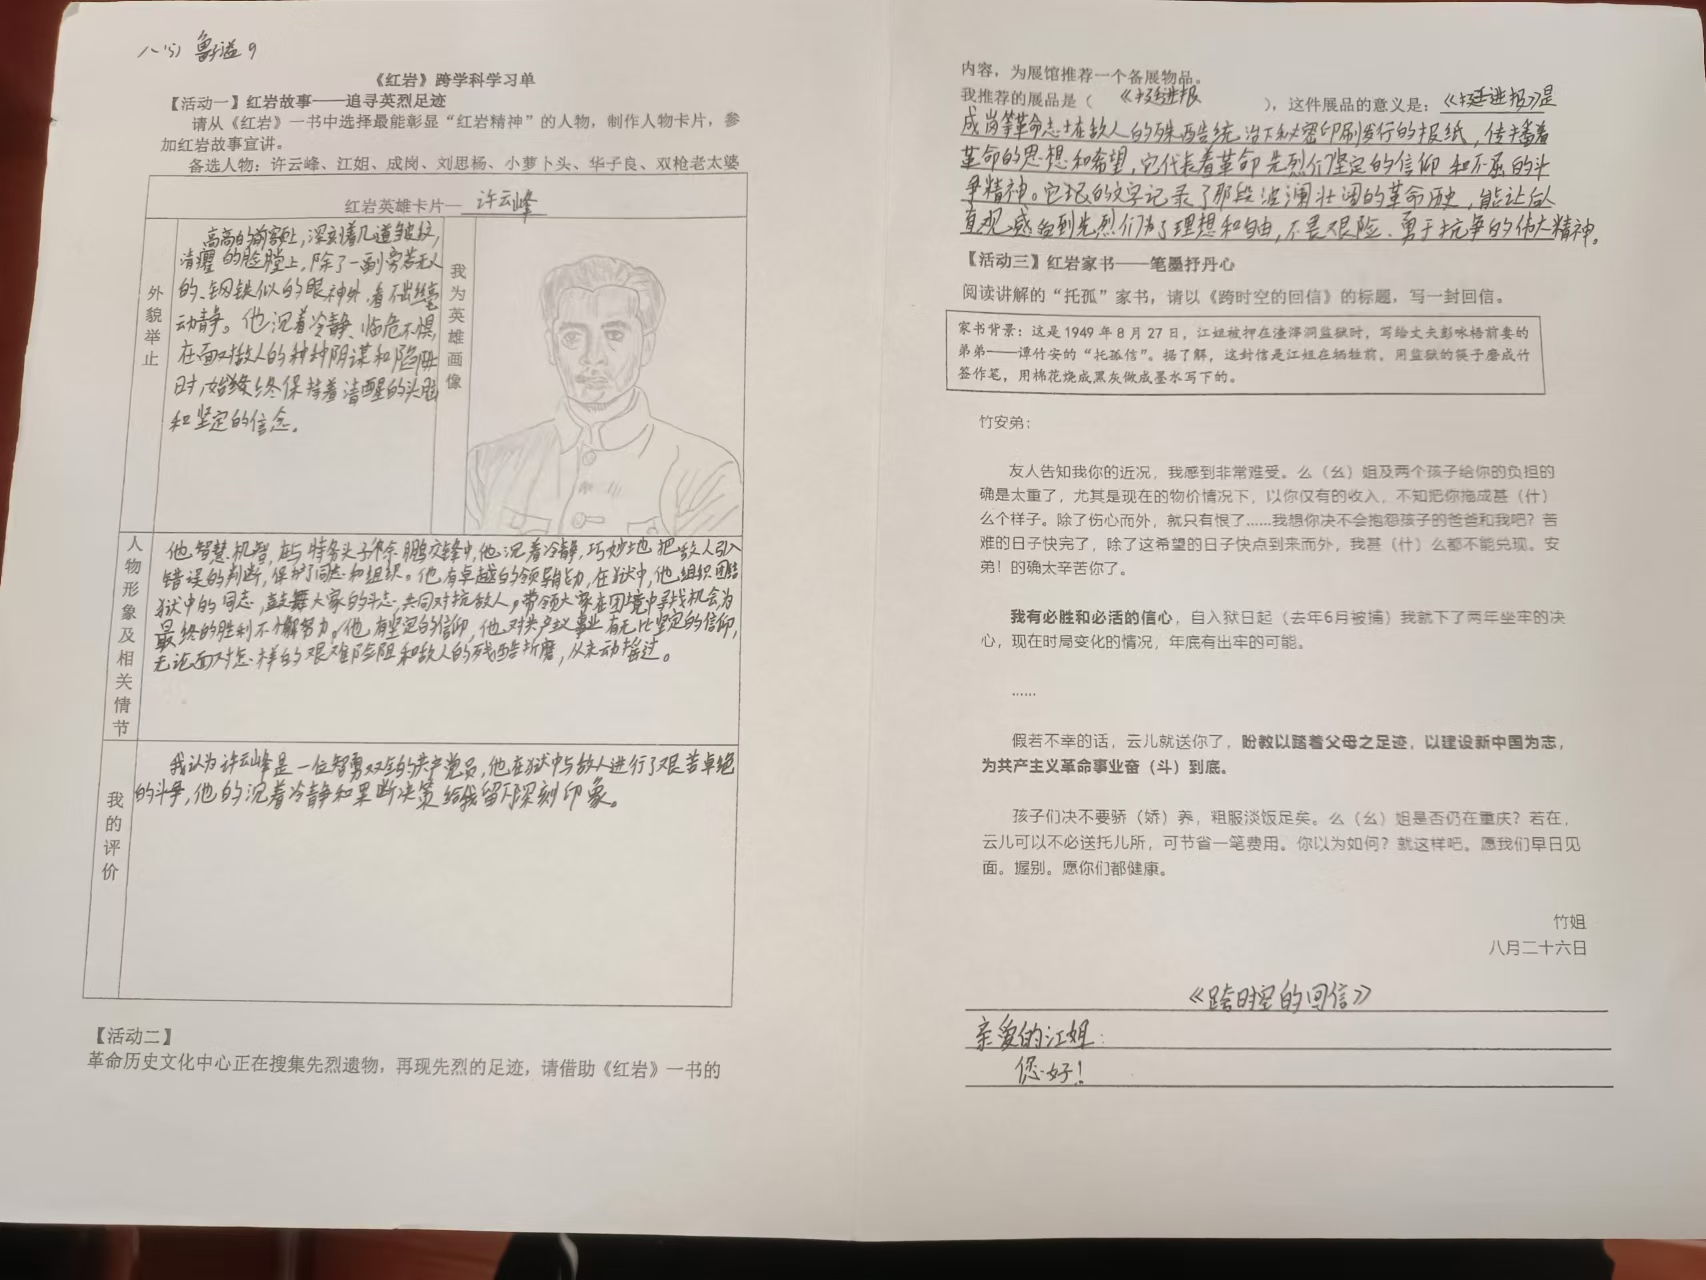 八(5) 鲁溢 9
《红岩》跨学科学习单
【活动一】红岩故事——追寻英烈足迹
请从《红岩》一书中选择最能彰显“红岩精神”的人物，制作人物卡片，参
加红岩故事宣讲。
备选人物：许云峰、江姐、成岗、刘思杨、小萝卜头、华子良、双枪老太婆
红岩英雄卡片— 许云峰
外貌举止
高高的前额上，深刻着几道皱纹，
清癯的脸膛上，除了一副旁若无人
的、钢铁似的眼神外，看不出丝毫
动静。他沉着冷静、临危不惧，
在面对敌人的种种阴谋和陷阱
时，始终保持着清醒的头脑
和坚定的信念。
我为英雄画像
人物形象及相关情节
他智慧机智，在与特务头子徐鹏飞交锋中，他沉着冷静，巧妙地把敌人引入
错误的判断，保护了同志和组织。他有卓越的领导能力，在狱中，他组织团结
狱中的同志，鼓舞大家的斗志，共同对抗敌人，带领大家在困境中寻找机会，为
最终的胜利不懈努力。他有坚定的信仰，他对共产主义事业有无比坚定的信仰，
无论面对怎样的艰难险阻和敌人的残酷折磨，从未动摇过。
我的评价
我认为许云峰是一位智勇双全的共产党员，他在狱中与敌人进行了艰苦卓绝
的斗争，他的沉着冷静和果断决策给我留下深刻印象。
【活动二】
革命历史文化中心正在搜集先烈遗物，再现先烈的足迹，请借助《红岩》一书的
内容，为展馆推荐一个备展物品。
我推荐的展品是（ 《挺进报 ），这件展品的意义是：《挺进报》是
成岗等革命志士在敌人的残酷统治下秘密印刷发行的报纸，传播着
革命的思想和希望，它代表着革命先烈们坚定的信仰和不屈的斗
争精神。它的文字记录了那段波澜壮阔的革命历史，能让后人
直观感受到先烈们为了理想和自由，不畏艰险、勇于抗争的伟大精神。
【活动三】红岩家书——笔墨抒丹心
阅读讲解的“托孤”家书，请以《跨时空的回信》的标题，写一封回信。
家书背景：这是 1949 年 8 月 27 日，江姐被押在渣滓洞监狱时，写给丈夫彭咏梧前妻的
弟弟——谭竹安的“托孤信”。据了解，这封信是江姐在牺牲前，用监狱的筷子磨成竹
签作笔，用棉花烧成黑灰做成墨水写下的。
竹安弟：
友人告知我你的近况，我感到非常难受。么（幺）姐及两个孩子给你的负担的
确是太重了，尤其是现在的物价情况下，以你仅有的收入，不知把你拖成甚（什）
么个样子。除了伤心而外，就只有恨了......我想你决不会抱怨孩子的爸爸和我吧？苦
难的日子快完了，除了这希望的日子快点到来而外，我甚（什）么都不能兑现。安
弟！的确太辛苦你了。
我有必胜和必活的信心，自入狱日起（去年6月被捕）我就下了两年坐牢的决
心，现在时局变化的情况，年底有出牢的可能。
......
假若不幸的话，云儿就送你了，盼教以踏着父母之足迹，以建设新中国为志，
为共产主义革命事业奋（斗）到底。
孩子们决不要骄（娇）养，粗服淡饭足矣。么（幺）姐是否仍在重庆？若在，
云儿可以不必送托儿所，可节省一笔费用。你以为如何？就这样吧。愿我们早日见
面。握别。愿你们都健康。
竹姐
八月二十六日
《跨时空的回信》
亲爱的江姐：
您好！